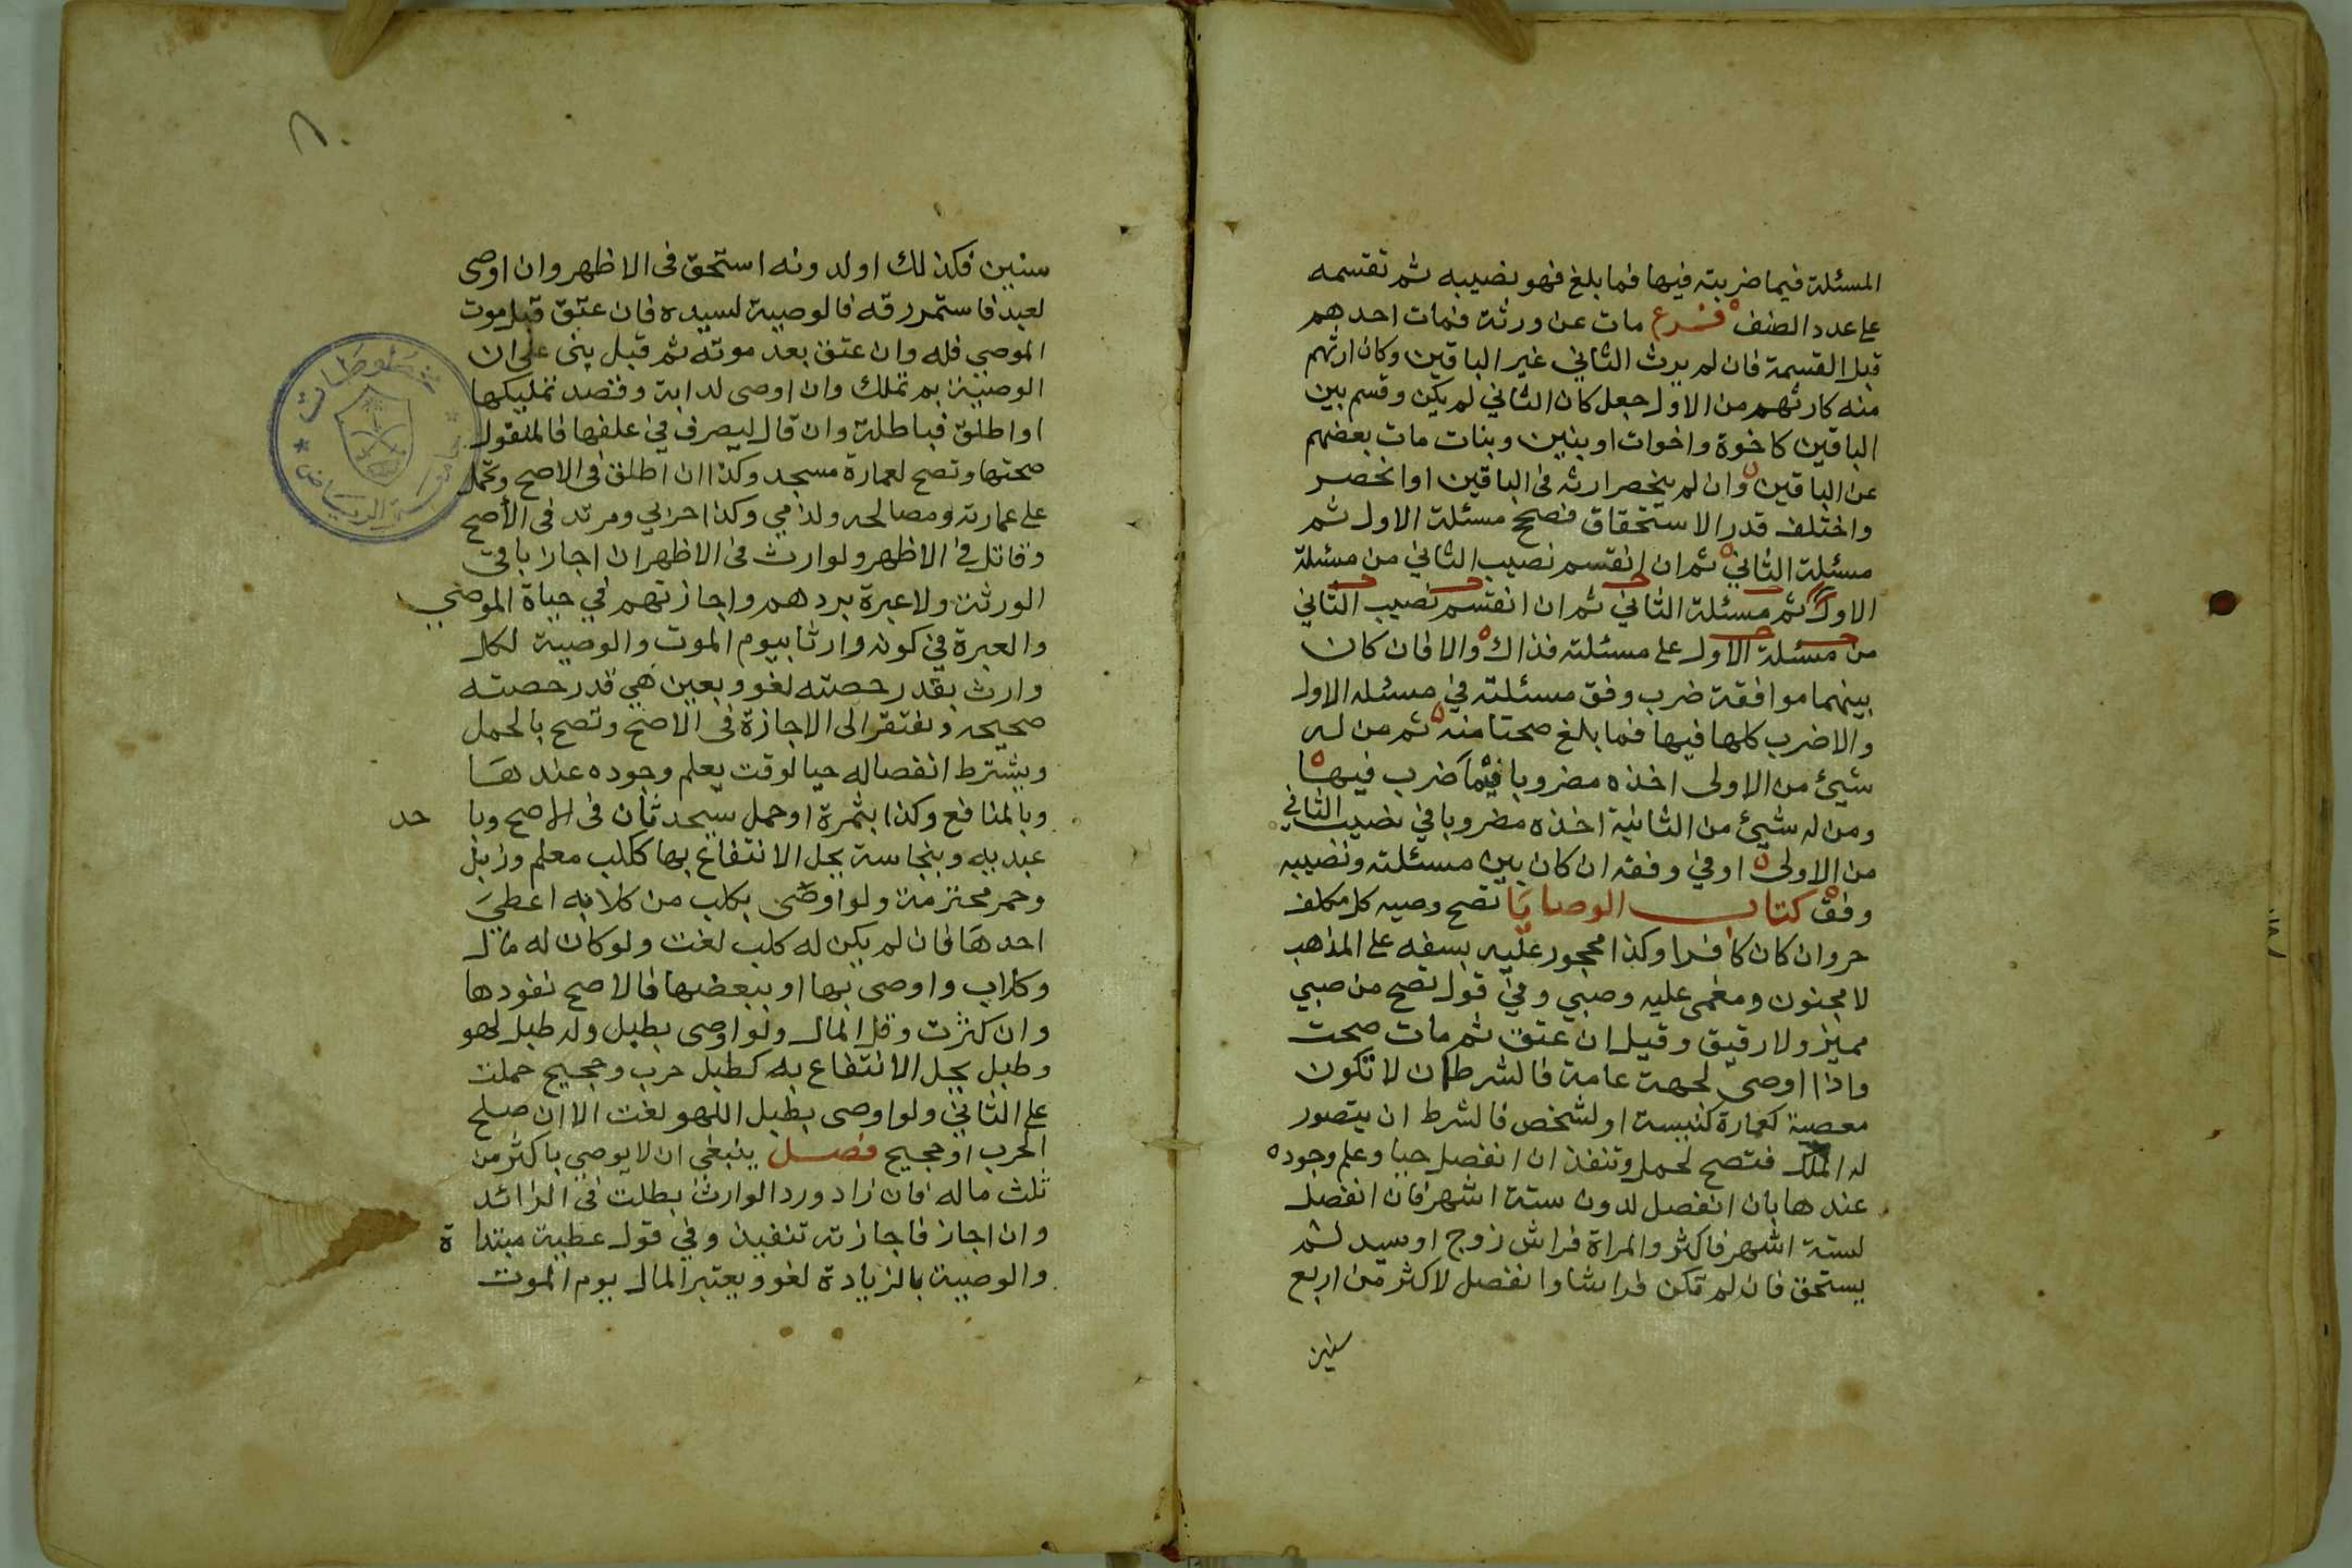 المسئلة فيما ضربته فيها فما بلغ فهو نصيبه ثم تقسمه
على عدد الصنف فرع مات عن ورثة فمات احدهم
قبل القسمة فان لم يرث الثاني غير الباقين وكان ارثهم
منه كارثهم من الاول جعل كان الثاني لم يكن وقسم بين
الباقين كاخوة واخوات او بنين وبنات مات بعضهم
عن الباقين وان لم ينحصر ارثه فى الباقين او انحصر
واختلف قدر الاستحقاق فصحح مسئلة الاول ثم
مسئلة الثاني ثم ان انقسم نصيب الثاني من مسئلة
الاول ثم مسئلة الثاني ثم ان انقسم نصيب الثاني
من مسئلة الاول على مسئلته فذاك والا فان كان
بينهما موافقة ضرب وفق مسئلته في مسئله الاول
والا ضرب كلها فيها فما بلغ صحتا منه ثم من له
شيئ من الاولى اخذه مضروبا فيما ضرب فيها
ومن له شيئ من الثانية اخذه مضروبا في نصيب الثاني
من الاولى او في وفقه ان كان بين مسئلته ونصيبه
وفق كتاب الوصايا تصح وصيه كل مكلف
حر وان كان كافرا وكذا محجور عليه بسفه على المذهب
لا مجنون ومغمى عليه وصبي وفي قول تصح من صبي
مميز ولا رقيق وقيل ان عتق ثم مات صحت
واذا اوصى لجهة عامة فالشرط ان لا تكون
معصية كعمارة كنيسة او لشخص فالشرط ان يتصور
له الملك فتصح لحمل وتنفذ ان انفصل حيا وعلم وجوده
عندها بان انفصل لدون ستة اشهر فان انفصل
لستة اشهر فاكثر والمراة فراش زوج او سيد لم
يستحق فان لم تكن فراشا وانفصل لاكثر من اربع
سنين
سنين فكذلك او لدونه استحق فى الاظهر وان اوصى
لعبد فاستمر رقه فالوصية لسيده فان عتق قبل موت
الموصي فله وان عتق بعد موته ثم قبل بنى على ان
الوصية بم تملك وان اوصى لدابة وقصد تمليكها
او اطلق فباطلة وان قال ليصرف في علفها فالمنقول
صحتها وتصح لعمارة مسجد وكذا ان اطلق فى الاصح وتحمل
على عمارته ومصالحه ولذمي وكذا حربي ومرتد فى الأصح
وقاتل في الاظهر ولوارث فى الاظهر ان اجاز باقى
الورثة ولا عبرة بردهم واجازتهم في حياة الموصي
والعبرة في كونه وارثا بيوم الموت والوصية لكل
وارث بقدر حصته لغو وبعين هي قدر حصته
صحيحه وتفتقر الى الاجازة فى الاصح وتصح بالحمل
ويشترط انفصاله حيا لوقت يعلم وجوده عندها
وبالمنافع وكذا بثمرة او حمل سيحدثان فى الاصح وبا حد
عبديه وبنجاسة يحل الانتفاع بها ككلب معلم وزبل
وخمر محترمة ولو اوصى بكلب من كلابه اعطي
احدها فان لم يكن له كلب لغت ولو كان له مال
وكلاب واوصى بها او ببعضها فالاصح نفودها
وان كثرت وقل المال ولو اوصى بطبل وله طبل لهو
وطبل يحل الانتفاع به كطبل حرب وحجيج حملت
على الثاني ولو اوصى بطبل اللهو لغت الا ان صلح
لحرب او حجيج فصل ينبغي ان لا يوصي باكثر من
ثلث ماله فان زاد ورد الوارث بطلت في الزائد
وان اجاز فاجازته تنفيذ وفي قول عطية مبتدا ة
والوصية بالزيادة لغو ويعتبر المال يوم الموت